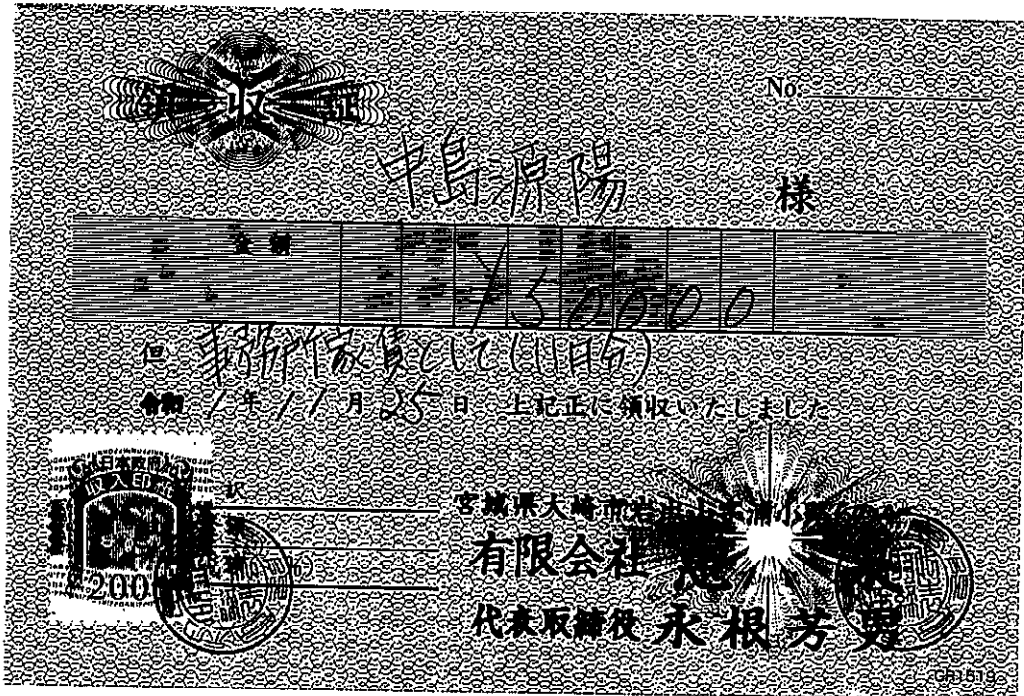 領収証
No.
中島源陽 様
金額
150000
但 事務所家賃として(11月分)
令和 1年 11月 25日 上記正に領収いたしました
日本政府
収入印紙
200
訳
宮城県大崎市岩出山
有限会社
代表取締役 永根芳男
GR1519